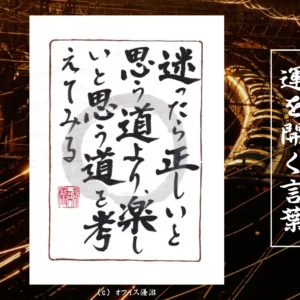 迷ったら正しいと
思う道より、楽し
いと思う道を考
えてみる
運を開く言葉
(C) オフィス優沼